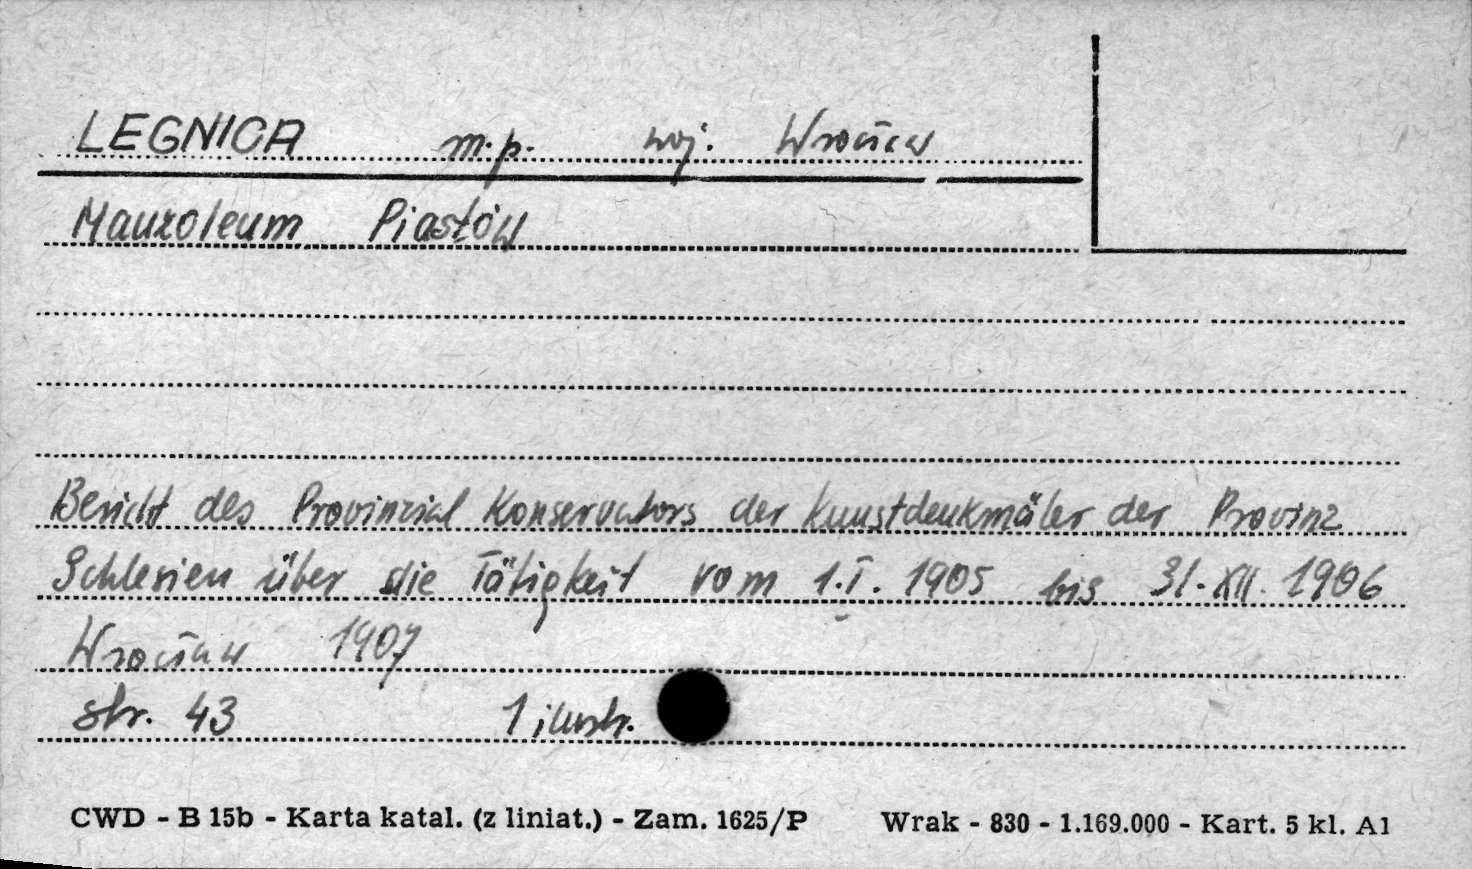 LEGNICA m.p. woj. Wrocław
Mauzoleum Piastów
Bericht des Provinzial Konservators der Kunstdenkmäler der Provinz
Schlesien über die Tätigkeit vom 1.I. 1905 bis 31.XII. 1906
Wrocław 1907
str. 43 1 ilustr.
CWD - B 15b - Karta katal. (z liniat.) - Zam. 1625/P Wrak - 830 - 1.169.000 - Kart. 5 kl. A1